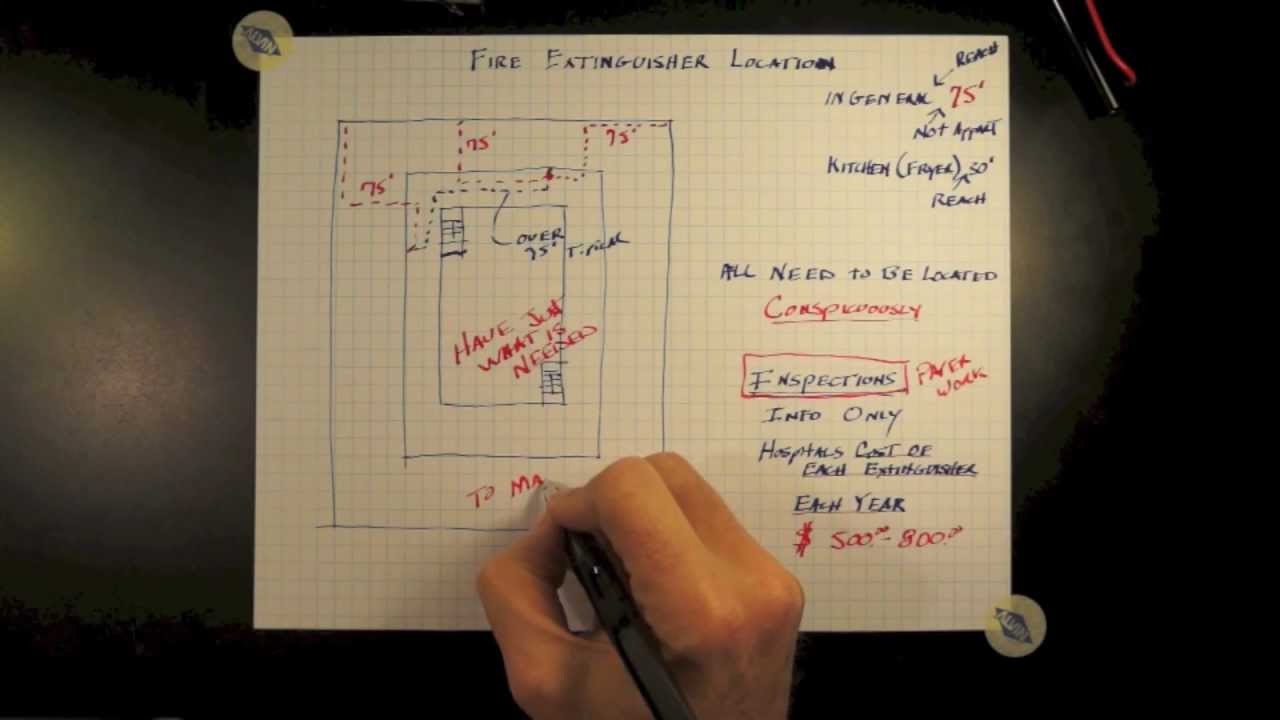 ALVIN
FIRE EXTINGUISHER LOCATION
REACH
IN GENERAL 75'
NOT APPART
KITCHEN (FRYER) 30'
REACH
75'
75'
75'
OVER
75' TIPICAL
ALL NEED TO BE LOCATED
CONSPICUOUSLY
HAVE JUST
WHAT IS
NEEDED
INSPECTIONS PAPER
WORK
INFO ONLY
HOSPITALS COST OF
EACH EXTINGUISHER
EACH YEAR
$ 500.00 - 800.00
TO MA
ALVIN